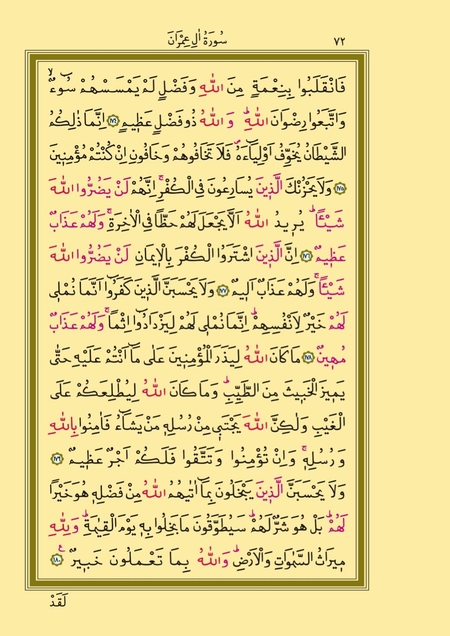 ٧٢ سُورَةُ اٰلِ عِمْرٰنَ
فَانْقَلَبُوا بِنِعْمَةٍ مِنَ اللّٰهِ وَفَضْلٍ لَمْ يَمْسَسْهُمْ سُٓوءٌۙ
وَاتَّبَعُوا رِضْوَانَ اللّٰهِۜ وَاللّٰهُ ذُوفَضْلٍ عَظٖيمٍ ﴿١٧٤﴾ اِنَّمَا ذٰلِكُمُ
الشَّيْطَانُ يُخَوِّفُ اَوْلِيَٓاءَهُۖ فَلَا تَخَافُوهُمْ وَخَافُونِ اِنْ كُنْتُمْ مُؤْمِنٖينَ
﴿١٧٥﴾ وَلَا يَحْزُنْكَ الَّذٖينَ يُسَارِعُونَ فِي الْكُفْرِۚ اِنَّهُمْ لَنْ يَضُرُّوا اللّٰهَ
شَيْـًٔاۜ يُرٖيدُ اللّٰهُ اَلَّا يَجْعَلَ لَهُمْ حَظًّا فِي الْاٰخِرَةِۚ وَلَهُمْ عَذَابٌ
عَظٖيمٌ ﴿١٧٦﴾ اِنَّ الَّذٖينَ اشْتَرَوُا الْكُفْرَ بِالْاٖيمَانِ لَنْ يَضُرُّوا اللّٰهَ
شَيْـًٔاۚ وَلَهُمْ عَذَابٌ اَلٖيمٌ ﴿١٧٧﴾ وَلَا يَحْسَبَنَّ الَّذٖينَ كَفَرُٓوا اَنَّمَا نُمْلٖي
لَهُمْ خَيْرٌ لِاَنْفُسِهِمْۜ اِنَّمَا نُمْلٖي لَهُمْ لِيَزْدَادُٓوا اِثْمًاۚ وَلَهُمْ عَذَابٌ
مُهٖينٌ ﴿١٧٨﴾ مَا كَانَ اللّٰهُ لِيَذَرَ الْمُؤْمِنٖينَ عَلٰى مَٓا اَنْتُمْ عَلَيْهِ حَتّٰى
يَمٖيزَ الْخَبٖيثَ مِنَ الطَّيِّبِۜ وَمَا كَانَ اللّٰهُ لِيُطْلِعَكُمْ عَلَى
الْغَيْبِ وَلٰكِنَّ اللّٰهَ يَجْتَبٖي مِنْ رُسُلِهٖ مَنْ يَشَٓاءُ فَاٰمِنُوا بِاللّٰهِ
وَرُسُلِهٖۚ وَاِنْ تُؤْمِنُوا وَتَتَّقُوا فَلَكُمْ اَجْرٌ عَظٖيمٌ ﴿١٧٩﴾
وَلَا يَحْسَبَنَّ الَّذٖينَ يَبْخَلُونَ بِمَٓا اٰتٰيهُمُ اللّٰهُ مِنْ فَضْلِهٖ هُوَ خَيْرًا
لَهُمْۜ بَلْ هُوَ شَرٌّ لَهُمْۜ سَيُطَوَّقُونَ مَا بَخِلُوا بِهٖ يَوْمَ الْقِيٰمَةِۜ وَلِلّٰهِ
مٖيرَاثُ السَّمٰوَاتِ وَالْاَرْضِۜ وَاللّٰهُ بِمَا تَعْمَلُونَ خَبٖيرٌ ﴿١٨٠﴾ۚ
لَقَدْ